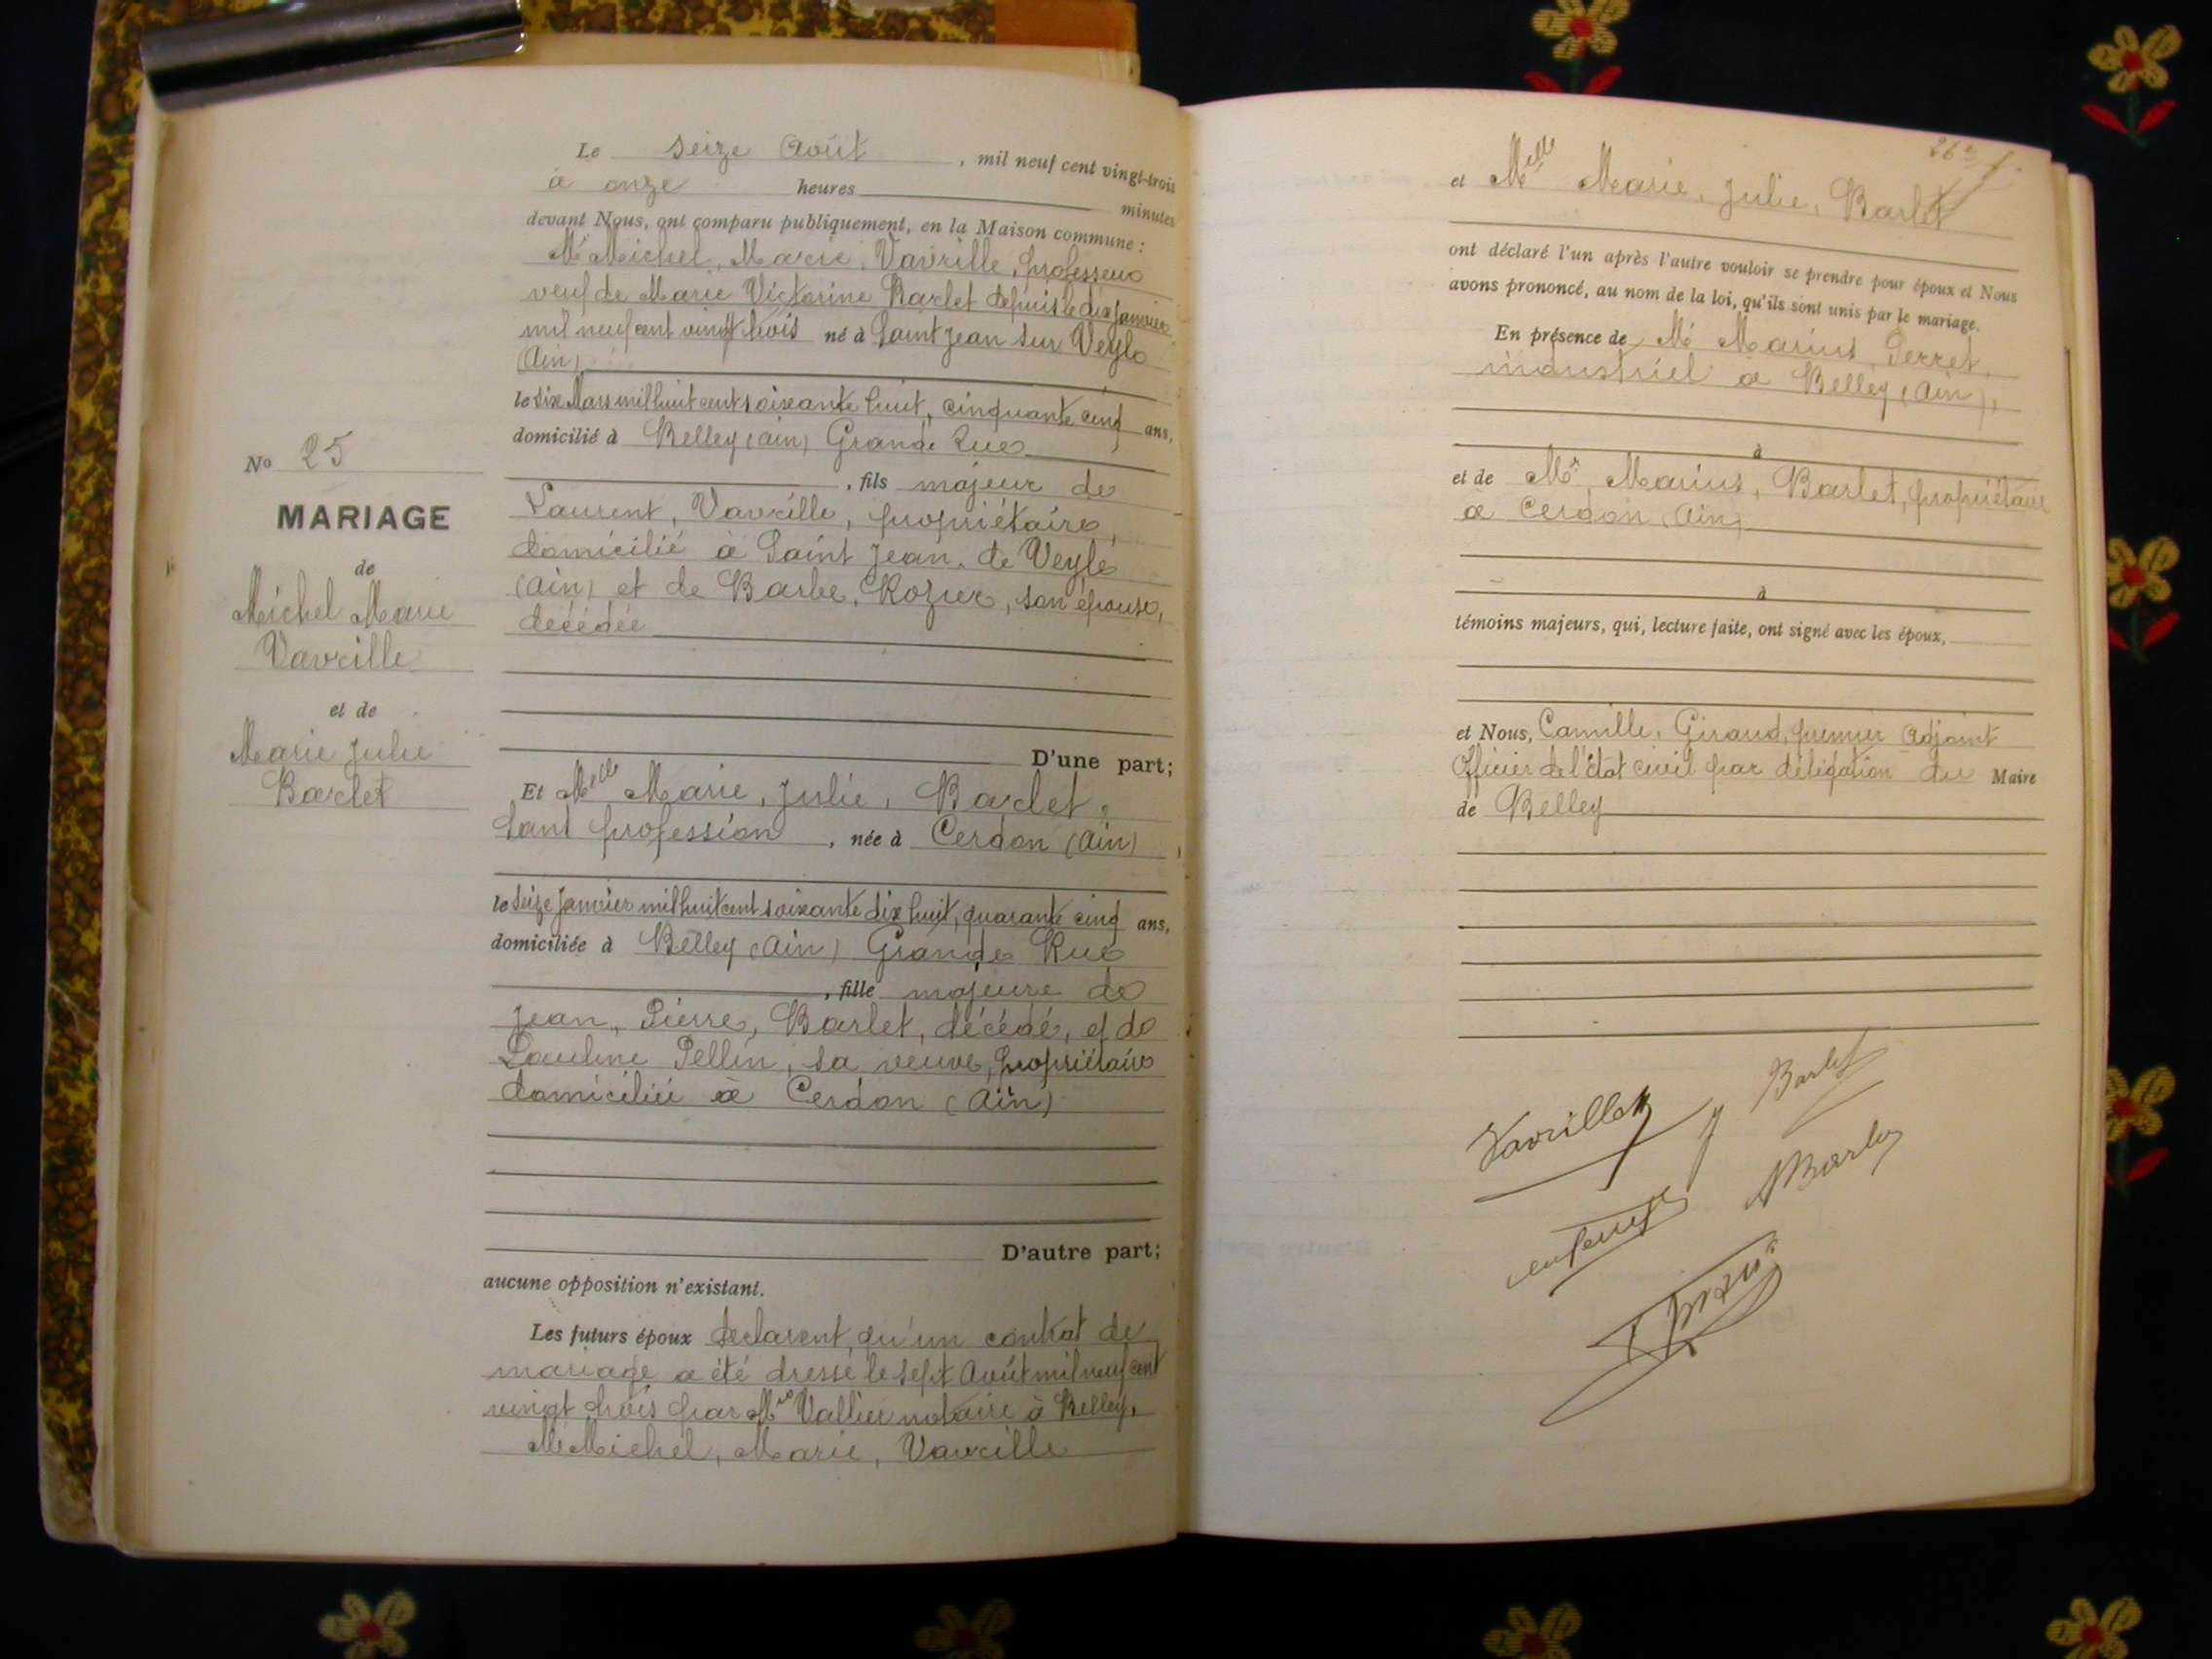 Le seize Août, mil neuf cent vingt-trois
à onze heures minutes
devant Nous, ont comparu publiquement, en la Maison commune :
Mr Michel, Marie, Vavrille, professeur
veuf de Marie Victorine Barlet depuis le dix janvier
mil neuf cent vingt trois né à Saint Jean sur Veyle
(Ain)
le six Mars mil huit cent soixante huit, cinquante cinq ans,
domicilié à Belley (Ain) Grande Rue
, fils majeur de
Laurent, Vavrille, propriétaire,
domicilié à Saint Jean, de Veyle
(Ain) et de Barbe, Rozier, son épouse,
décédée
No 25
MARIAGE
de
Michel Marie
Vavrille
et de
Marie Julie
Barlet
D'une part;
Et Melle Marie, Julie, Barlet,
sans profession, née à Cerdon (Ain)
le seize Janvier mil huit cent soixante dix huit, quarante cinq ans,
domiciliée à Belley (Ain) Grande Rue
, fille majeure de
Jean, Pierre, Barlet, décédé, et de
Pauline Pellin, sa veuve, propriétaire
domiciliée à Cerdon (Ain)
D'autre part;
aucune opposition n'existant.
Les futurs époux déclarent qu'un contrat de
mariage a été dressé le sept Août mil neuf cent
vingt trois par Me Vallier notaire à Belley,
Mr Michel, Marie, Vavrille
26e f.
et Melle Marie, Julie, Barlet
ont déclaré l'un après l'autre vouloir se prendre pour époux et Nous
avons prononcé, au nom de la loi, qu'ils sont unis par le mariage.
En présence de Mr Marius Perret,
industriel à Belley (Ain),
à
et de Mr Marius, Barlet, propriétaire
à Cerdon (Ain)
à
témoins majeurs, qui, lecture faite, ont signé avec les époux,
et Nous, Camille, Giraud, premier Adjoint
Officier de l'état civil par délégation du Maire
de Belley
Vavrille
J Barlet
M Barlet